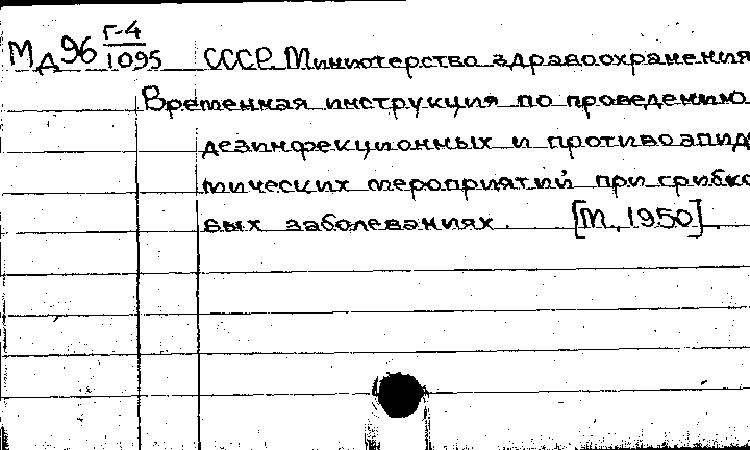 Мд96 Г-4/1095 СССР. Министерство здравоохранения
Временная инструкция по проведению
дезинфекционных и противоэпид
мических мероприятий при грибко
вых заболеваниях. [М., 1950].